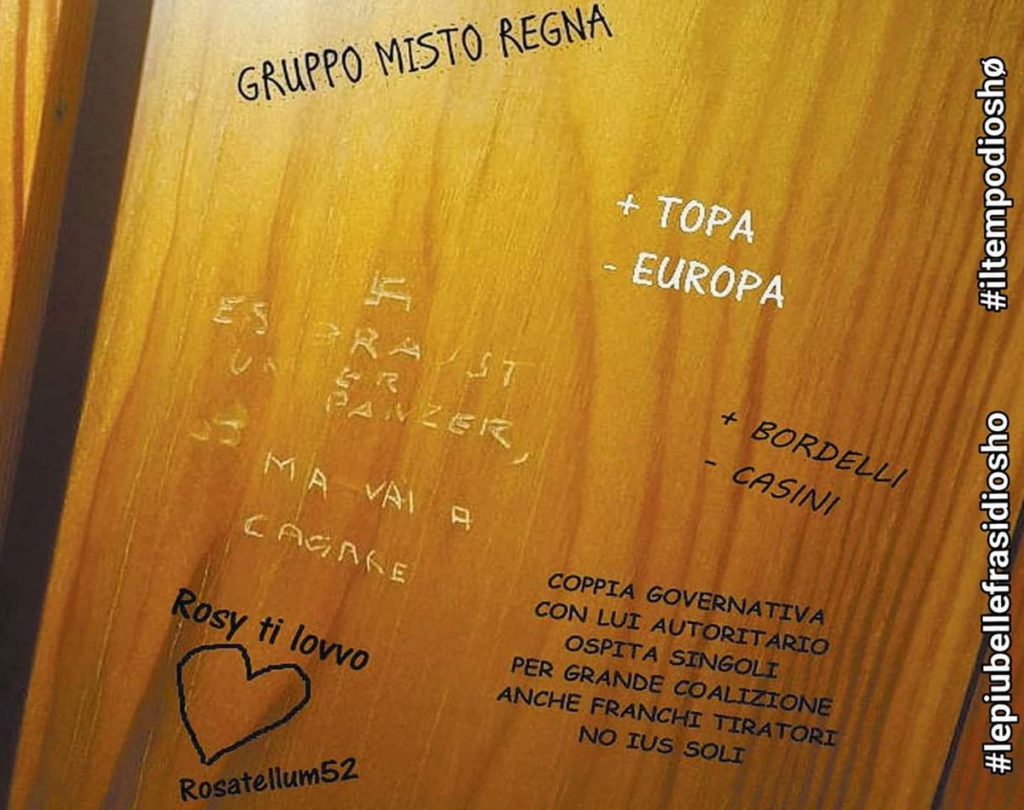 GRUPPO MISTO REGNA
+ TOPA
- EUROPA
ES
PANZER,
MA VAI A
CAGARE
+ BORDELLI
- CASINI
Rosy ti lovvo
Rosatellum52
COPPIA GOVERNATIVA
CON LUI AUTORITARIO
OSPITA SINGOLI
PER GRANDE COALIZIONE
ANCHE FRANCHI TIRATORI
NO IUS SOLI
#iltempodioshø
#lepiubellefrasidiosho